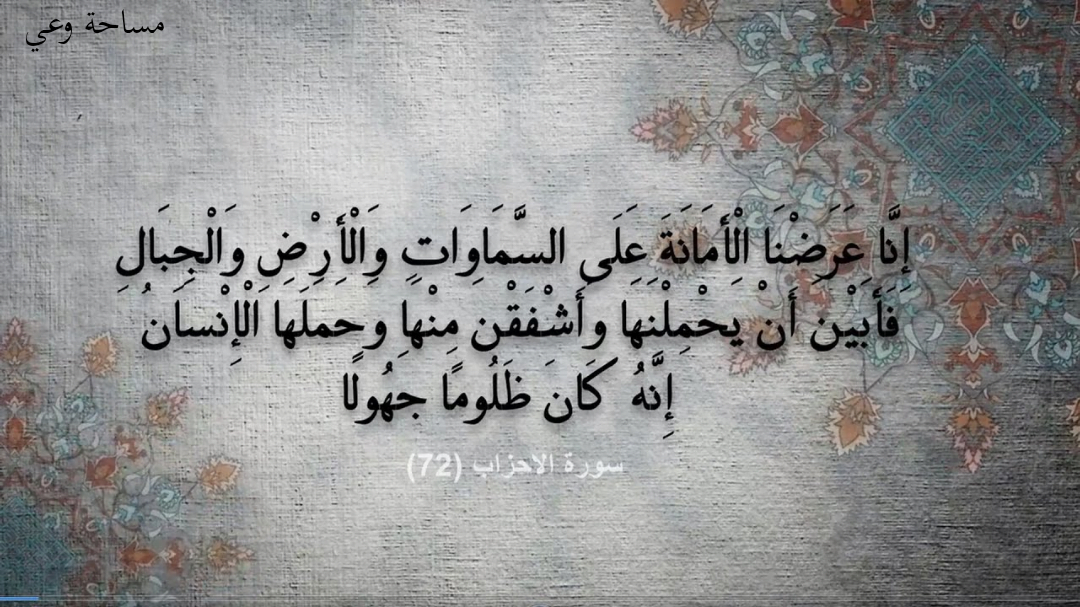 مساحة وعي
إِنَّا عَرَضْنَا الْأَمَانَةَ عَلَى السَّمَاوَاتِ وَالْأَرْضِ وَالْجِبَالِ
فَأَبَيْنَ أَنْ يَحْمِلْنَهَا وَأَشْفَقْنَ مِنْهَا وَحَمَلَهَا الْإِنْسَانُ
إِنَّهُ كَانَ ظَلُومًا جَهُولًا
سورة الاحزاب (72)